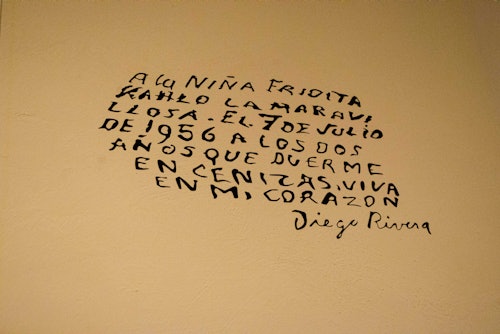 A la NIÑA FRIDITA
KAHLO LA MARAVI
LLOSA. EL 7 DE JULIO
DE 1956 A LOS DOS
AÑOS QUE DUERME
EN CENIZAS, VIVA
EN MI CORAZON
Diego Rivera